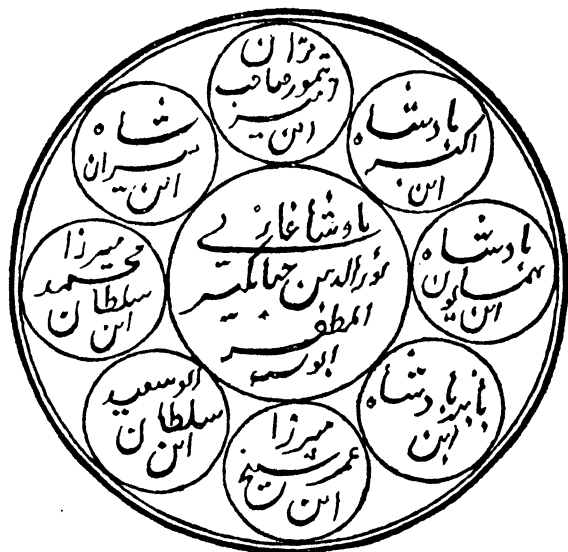 ابو
المظفر
نورالدین جهانگیر
بادشاه غازی
ابن
اکبر
بادشاه
ابن
همایون
بادشاه
ابن
بابر بادشاه
ابن
عمر شیخ
میرزا
ابن
سلطان
ابو سعید
ابن
سلطان
محمد
میرزا
ابن
میران
شاه
ابن
امیر
تیمور صاحب
قران